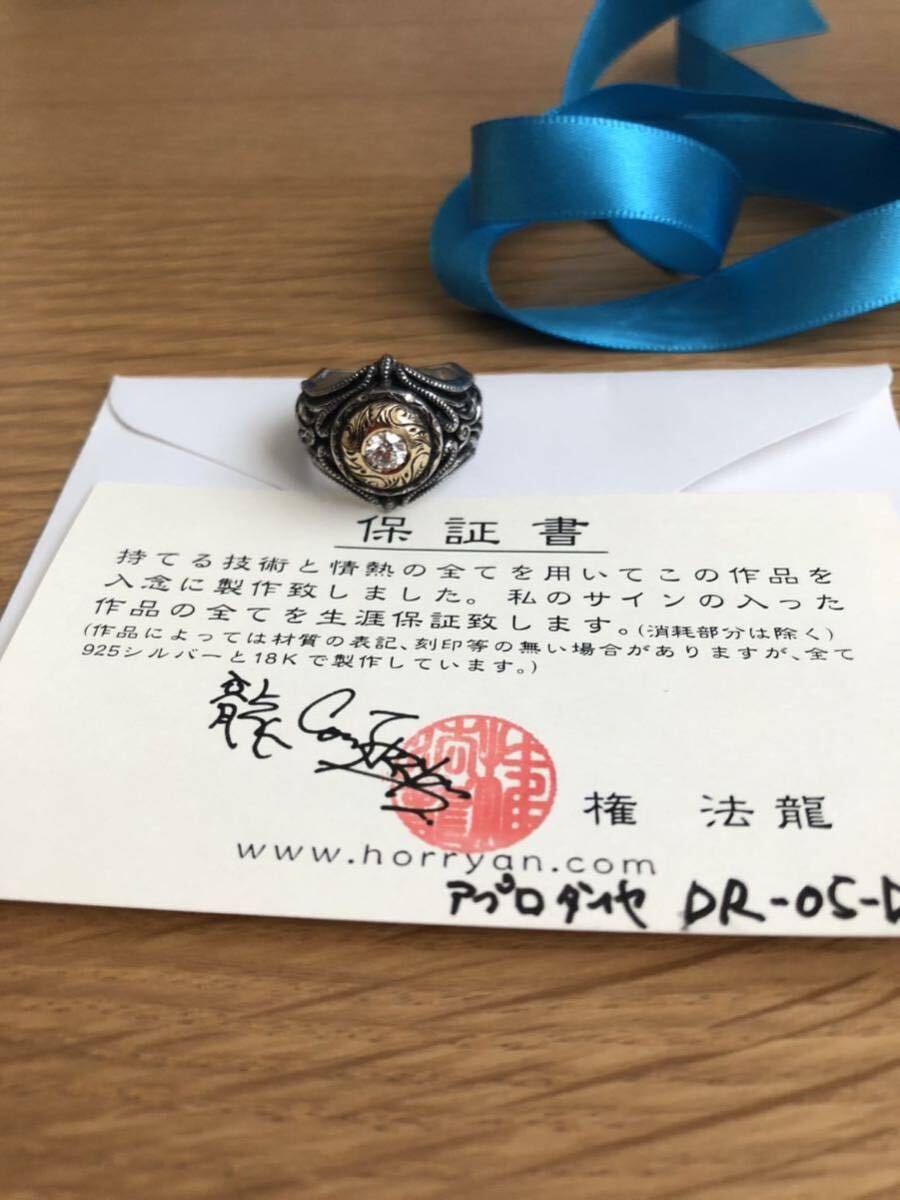 保証書
持てる技術と情熱の全てを用いてこの作品を
入念に製作致しました。私のサインの入った
作品の全てを生涯保証致します。(消耗部分は除く)
(作品によっては材質の表記、刻印等の無い場合がありますが、全て
925シルバーと18Kで製作しています。)
龍
権 法龍
www.horryan.com
アプロダイヤ DR-05-D